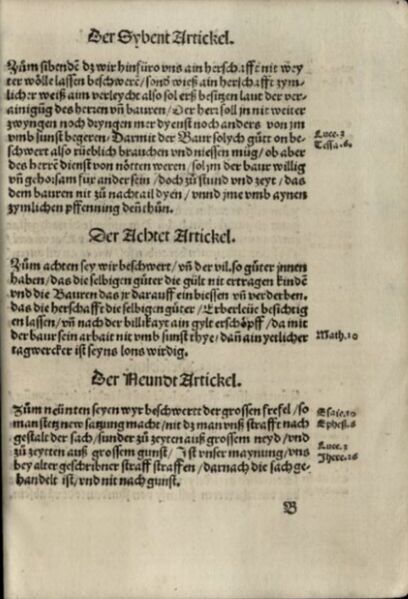 Der Sybent Artickel.
Zům sibendē dz wir hinfüro vns ain herschafft nit wey
ter wölle lassen beschwerē/sond wieß ain herschafft zym-
licher weiß aim verleycht also sol erß besitzen laut der ver-
ainigūg des herren vn̄ bauren/Der herr soll jn nit weiter
zwyngen noch dryngen mer dyenst noch anders von jm
vmb sunst begeren/Darmit der Baur solych gütt on be-
Luce.3
schwert also rüeblich brauchen vnd niessen müg/ob aber
Tessa.6.
des herrē dienst von nötten weren/sol jm der baur willig
vn̄ gehorsam für ander sein/doch zů stund vnd zeyt/das
dem bauren nit zů nachtail dyen/vnnd jme vmb aynen
zymlichen pffenning den̄ thün.
Der Achtet Artickel.
Zům achten sey wir beschwert/vn̄ der vil. so güter jnnen
haben/das die selbigen güter die gült nit ertragen kindē
vnd die Bauren das jr darauff einbiessen vn̄ verderben.
das die herschafft die selbigen güter/Erberleüt besichtig
en lassen/vn̄ nach der billikayt ain gylt erschöpff/da mit
der baur sein arbait nit vmb sunst thye/dan̄ ain yetlicher
Math.10
tagwercker ist seyns lons wirdig.
Der Neundt Artickel.
Zům neünten seyen wyr beschwertt der grossen frefel/so
Esaie.10
man stetz new satzung macht/nit dz man vnß strafft nach
Ephes.6
gestalt der sach/sunder zů zeyten auß grossem neyd/vnd
zů zeytten auß grossem gunst/Ist vnser maynung/vns
Luce.3
bey alter geschribner straff straffen/darnach die sach ge-
Jhere.26
handelt ist/vnd nit nach gunst.
B